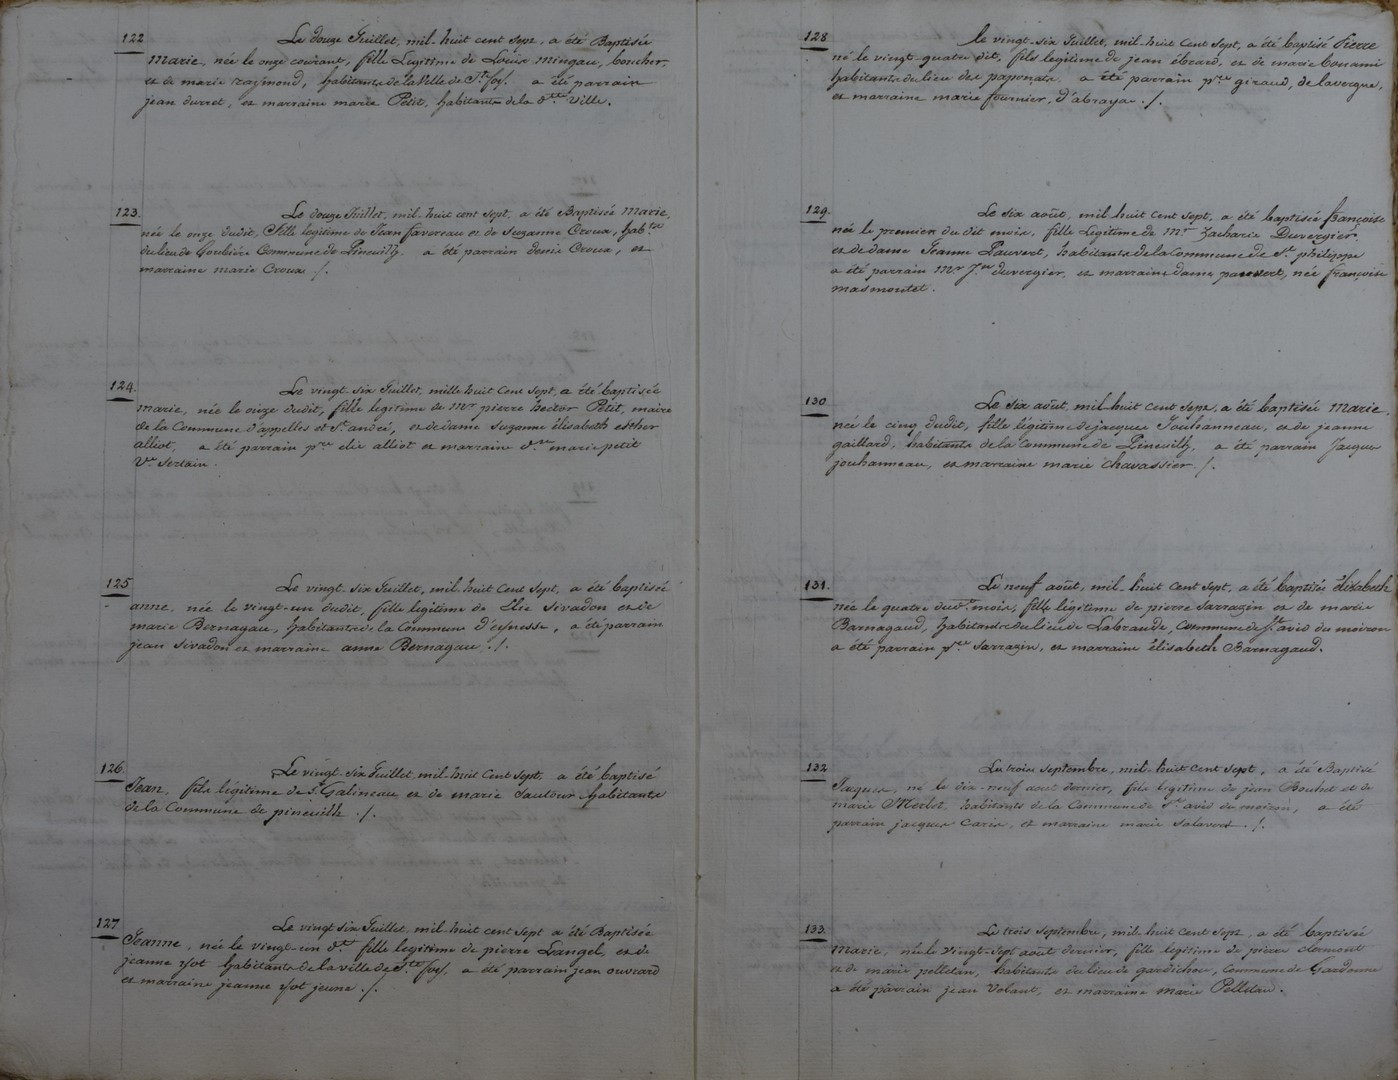 122
Le douze Juillet, mil-huit cent sept, a été Baptisée
marie, née le onze courant, fille Légitime de Louis mingau, boucher,
et de marie raymond, habitants de la Ville de Ste foy. a été parrain
jean durret, et marraine marie Petit, habitants de la dte ville.
123.
Le douze Juillet, mil-huit cent sept, a été Baptisée marie,
née le onze dudit, fille legitime de Jean favereau et de Suzanne Croux, habts
du lieu de Goulière Commune de Pineuilh, a été parrain denis Croux, et
marraine marie Croux ./.
124.
Le vingt-six Juillet, mille huit Cent Sept, a été baptisée
marie, née le onze dudit, fille legitime de Mr pierre hector Petit, maire
de la Commune d'appelles et St andré, et de dame Suzanne élisabeth esther
alliot, a été parrain pre elie alliot et marraine dme marie petit
Ve Sertain.
125
Le vingt-six Juillet, mil-huit Cent Sept, a été baptisée
anne, née le vingt-un dudit, fille legitime de Elie Sivadon et de
marie Bernagau, habitants de la Commune d'esnesse, a été parrain
jean Sivadon et marraine anne Bernagau ./.
126.
Le vingt-six Juillet, mil-huit Cent sept, a été baptisé
Jean, fils légitime de J. Galineau et de marie Sautour habitants
de la Commune de pineuilh ./.
127
Le vingt six Juillet, mil-huit cent sept a été Baptisée
Jeanne, née le vingt-un dt fille legitime de pierre Langel, et de
jeanne yot habitants de la ville de Ste foy, a été parrain jean ouvrard
et marraine jeanne yot jeune ./.
128
le vingt-six Juillet, mil-huit Cent Sept, a été baptisé Pierre
né le vingt-quatre dit, fils legitime de jean ébrard, et de marie bonami
habitants du lieu des paponats. a été parrain pre giraud, de lavergne,
et marraine marie fournier, d'abraya ./.
129.
Le six août, mil huit Cent Sept, a été baptisée françoise
née le premier du dit mois, fille Legitime de Mr Zacharie Duvergier
et de dame Jeanne Pauvert, habitants de la Commune de St philippe
a été parrain Mr Jn duvergier, et marraine dame pauvert, née françoise
masmontet.
130
Le Six août, mil huit Cent Sept, a été baptisée Marie,
née le cinq dudit, fille légitime de jacques Jouhanneau, et de jeanne
gaillard, habitants de la Commune de Pineuilh, a été parrain Jacques
jouhanneau, et marraine marie chavassier ./.
131.
Le neuf août, mil huit Cent Sept, a été baptisée élisabeth
née le quatre du dt mois, fille légitime de pierre Sarrazin et de marie
Barnagaud, habitants du lieu de Labrande, Commune de St avid du moiron
a été parrain pre Sarrazin, et marraine élisabeth Barnagaud.
132
Le trois Septembre, mil-huit Cent Sept, a été Baptisé
Jacques, né le dix-neuf aout dernier, fils legitime de jean Bouhet et de
marie Merlet, habitants de la Commune de St avid du moiron, a été
parrain jacques Caris, et marraine marie Salavert ./.
133.
Le trois Septembre, mil huit Cent Sept, a été baptisée
Marie, née le vingt-sept août dernier, fille legitime de pierre clermont
et de marie pelletan, habitants du lieu de gardichou, commune de Gardonne
a été parrain jean Volant, et marraine Marie Pelletan.